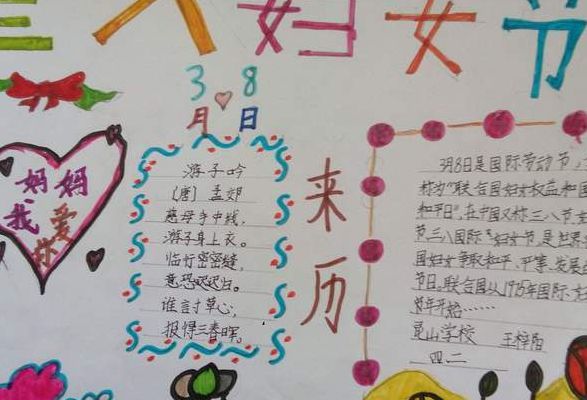 三八妇女节
3月8日
妈妈
我爱你
游子吟
(唐) 孟郊
慈母手中线,
游子身上衣。
临行密密缝,
意恐迟迟归。
谁言寸草心,
报得三春晖。
来历
3月8日是国际劳动节
称为"联合国妇女权益和国
和平日",在中国又称三八节
节三八国际妇女节,是世界
国妇女争取和平、平等、发展
节日。联合国从1975年国际
年开始……
昆山学校
四二